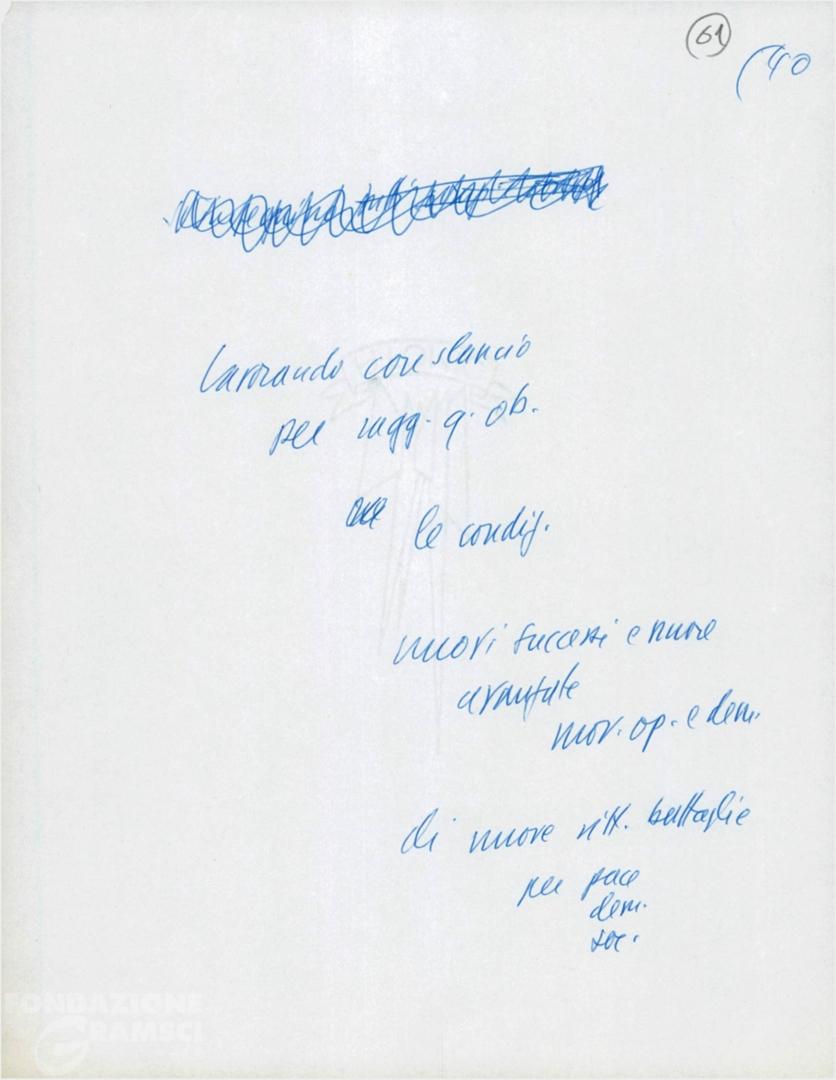 61
(40
lavorando con slancio
per ragg. q. ob.
le condiz.
nuovi successi e nuove
avanzate
mov. op. e dem.
di nuove vitt. battaglie
per pace
dem.
soc.
FONDAZIONE
GRAMSCI